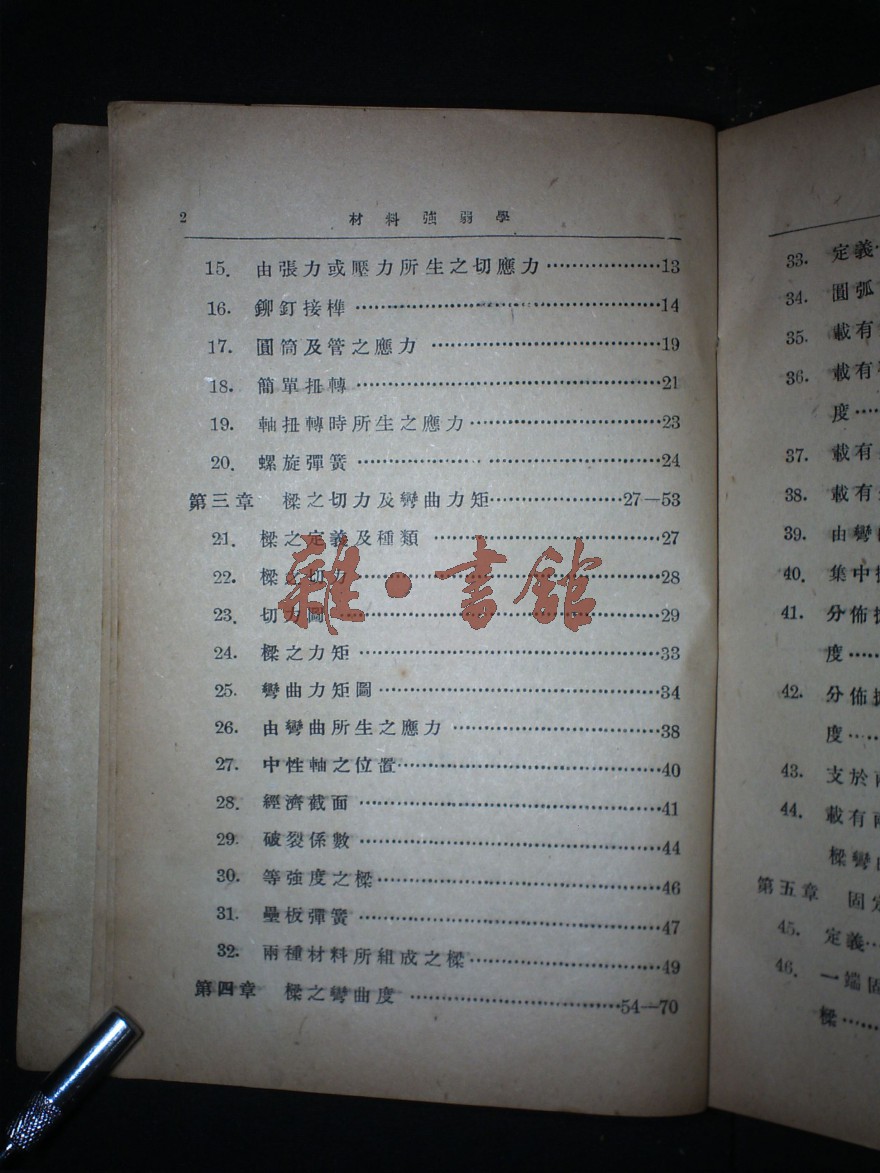 2 材料強弱學
15. 由張力或壓力所生之切應力………………13
16. 鉚釘接榫………………14
17. 圓筒及管之應力………………19
18. 簡單扭轉………………21
19. 軸扭轉時所生之應力………………23
20. 螺旋彈簧………………24
第三章 樑之切力及彎曲力矩………………27—53
21. 樑之定義及種類………………27
22. 樑之切力………………28
23. 切力圖………………29
24. 樑之力矩………………33
25. 彎曲力矩圖………………34
26. 由彎曲所生之應力………………38
27. 中性軸之位置………………40
28. 經濟截面………………41
29. 破裂係數………………44
30. 等強度之樑………………46
31. 疊板彈簧………………47
32. 兩種材料所組成之樑………………49
第四章 樑之彎曲度………………54—70
雜·書館
33. 定義…
34. 圓弧
35. 載有
36. 載有
度……
37. 載有
38. 載有
39. 由彎
40. 集中
41. 分佈
度……
42. 分佈
度……
43. 支於
44. 載有
樑彎
第五章 固定
45. 定義…
46. 一端固
樑……